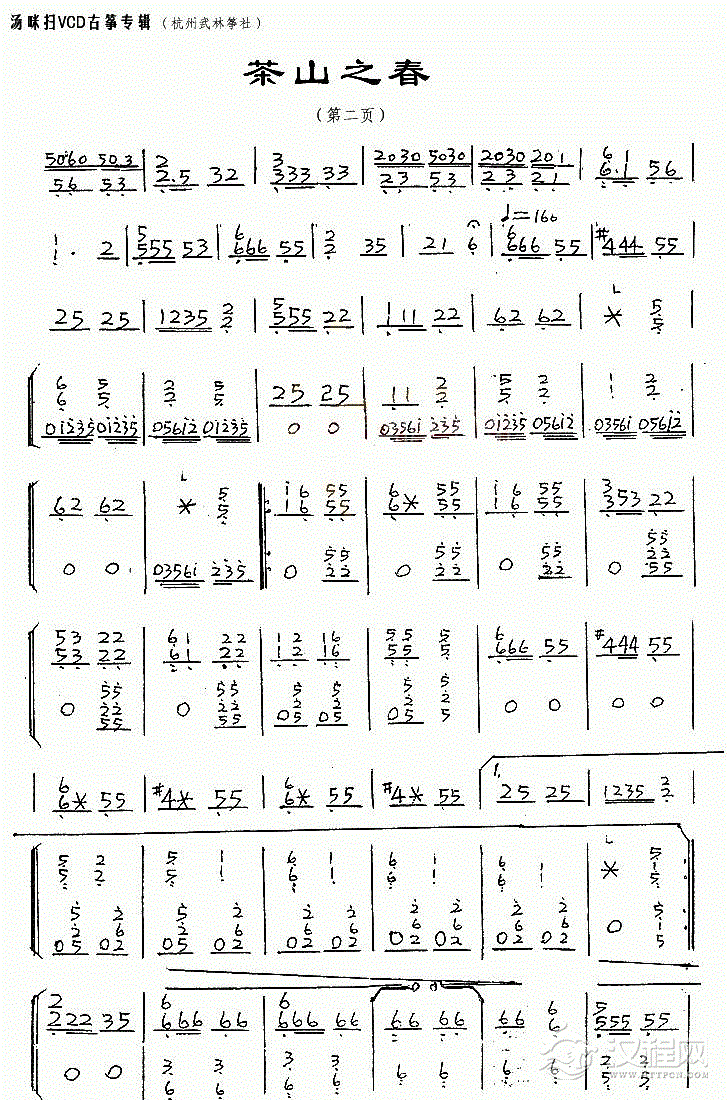 汤咪扫VCD古筝专辑（杭州武林筝社）
茶山之春
（第二页）
5060 503 | 2 2.5 32 | 3 333 33 | 2030 5030 | 2030 201 | 6 6.1 56
56 53 | 23 53 | 23 21
1. 2 | 5 555 53 | 6 666 55 | 2 2 35 | 21 6 | 6 666 55 | #444 55
♩=166
25 25 | 1235 2 2 | 5 555 22 | 111 22 | 62 62 | * 5 5
6 6 5 5 | 2 2 5 5 | 25 25 | 11 2 2 | 5 5 2 2 | 1 1 2 2
01235 01235 | 05612 01235 | 0 0 | 03561 235 | 01235 05612 | 03561 05612
62 62 | * 5 5 | 16 55 | 6* 55 | 16 55 | 3 353 22
0 0 | 03561 235
53 22 | 61 22 | 12 16 | 55 55 | 6 666 55 | #444 55
6 6* 55 | #4* 55 | 6 6* 55 | #4* 55 | 1. 25 25 | 1235 2 2
5 5 2 2 | 5 5 1 1 | 6 6 1 1 | 6 6 1 1 | 6 6 1 1 | * 5 1 5
05 02 | 05 02 | 05 02 | 02 02 | 05 02 | 0 5 1 5
2 222 35 | 6 666 66 | 6 666 66 | 66 66 | 66 6 6 | 5 555 55
0 0 | 3 6 3 6
汉程网
HTTPCN.COM